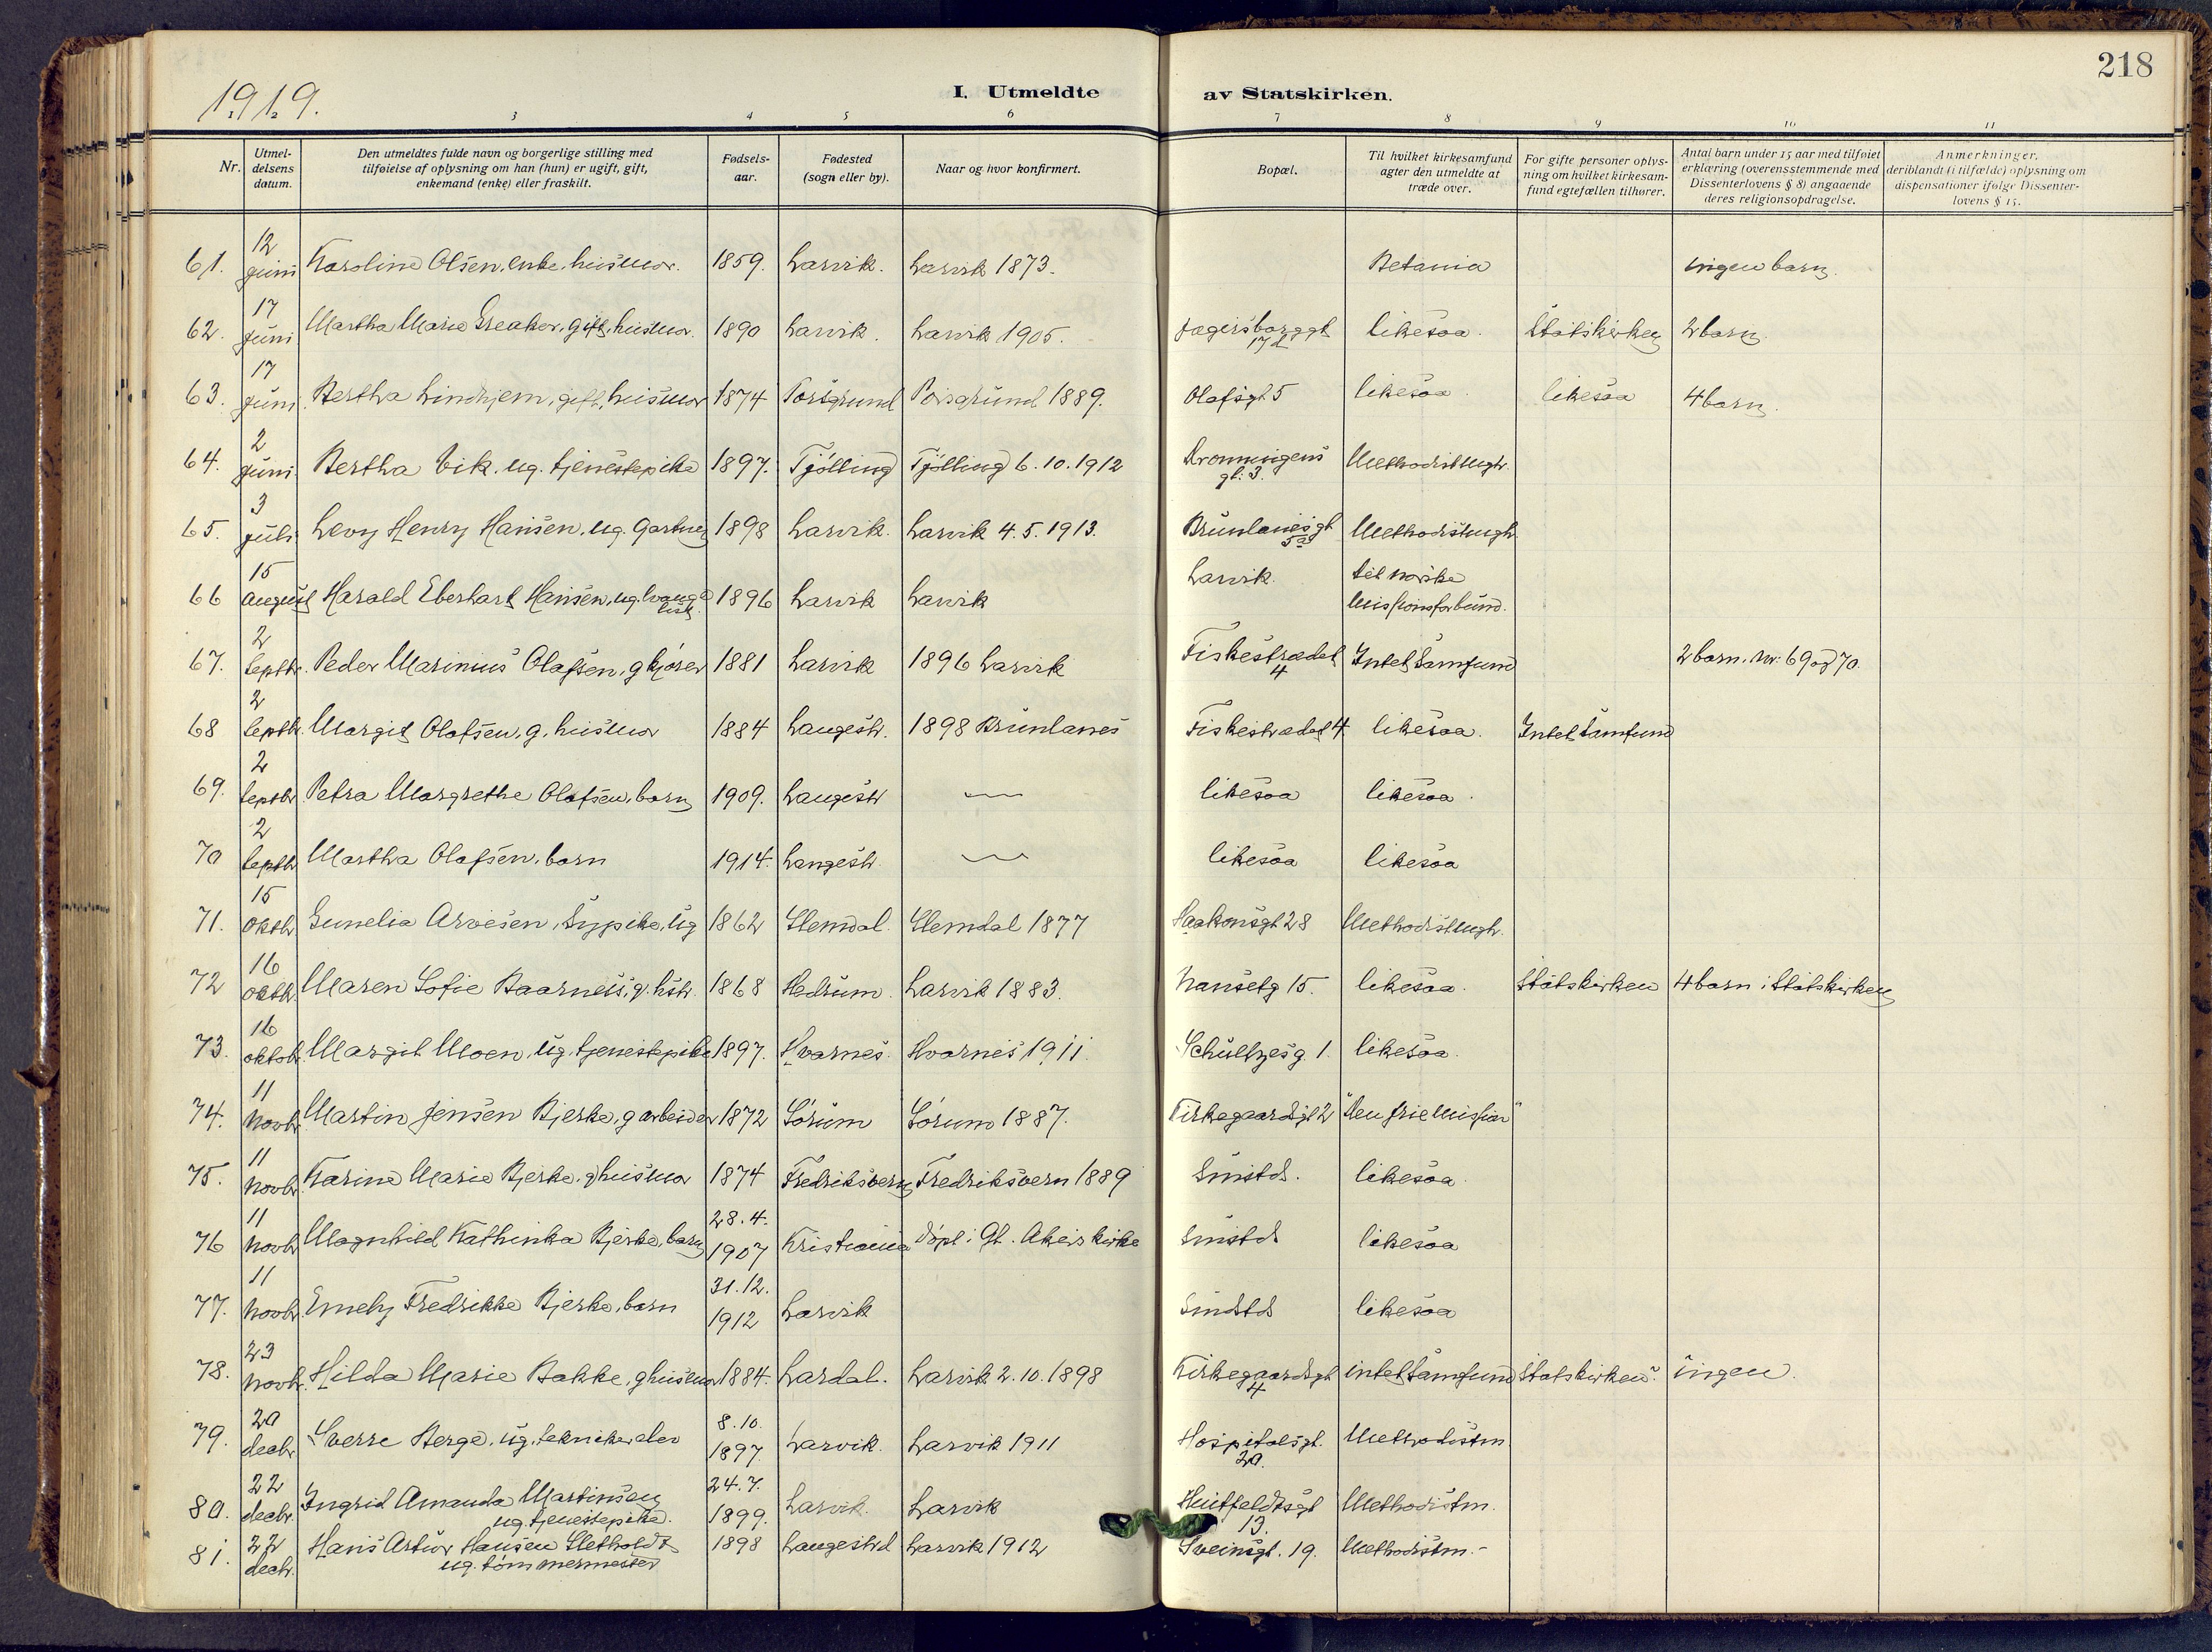 218
1919.
I. Utmeldte av Statskirken.
1 2 3 4 5 6 7 8 9 10 11
Nr. | Utmeldelsens datum. | Den utmeldtes fulde navn og borgerlige stilling med tilføielse av oplysning om han (hun) er ugift, gift, enkemand (enke) eller fraskilt. | Fødselsaar. | Fødested (sogn eller by). | Naar og hvor konfirmert. | Bopæl. | Til hvilket kirkesamfund agter den utmeldte at træde over. | For gifte personer oplysning om hvilket kirkesamfund egtefællen tilhører. | Antal barn under 15 aar med tilføiet erklæring (overensstemmende med Dissenterlovens § 8) angaaende deres religionsopdragelse. | Anmerkninger, deriblandt (i tilfælde) oplysning om dispensationer ifølge Dissenterlovens § 15.
61. 12 juni Karoline Olsen, enke, husmor. 1859. Larvik. Larvik 1873. Betania ingen barn.
62. 17 juni Martha Marie Greaker, gift, husmor. 1890 Larvik. Larvik 1905. Jægersborggt 17d likesaa. Statskirken 2 barn.
63. 17 juni Bertha Lindhjem, gift, husmor 1874 Porsgrund Porsgrund 1889. Olafsgt 5 likesaa. likesaa 4 barn.
64. 2 juni Bertha Vik, ug. tjenestepike 1897. Tjölling Tjölling 6.10.1912 Dronningens gt. 3. Methodistmgh.
65. 3 juli Levy Henry Hansen, ug. Gartner 1898 Larvik. Larvik 4.5.1913. Brunlanesgt 5a Methodistmgh.
66 15 august Harald Eberhart Hansen, ug. 1896 Larvik Larvik Larvik. det norske missionsforbund.
67. 2 septbr. Peder Marinius Olafsen, g kjører 1881 Larvik 1896 Larvik Fiskestrædet 4 Intet Samfund 2 barn. nr. 69 og 70.
68 2 septbr. Margit Olafsen, g. husmor 1884 Langestr. 1898 Brunlanes Fiskestrædet 4 likesaa. Intet samfund
69. 2 septbr Petra Margrethe Olafsen, barn 1909. Langestr — likesaa likesaa.
70 2 septbr Martha Olafsen, barn 1914. Langestr. — likesaa likesaa
71. 15 oktbr Gunelia Arvesen, Sypike, ug 1862 Slemdal. Slemdal 1877 Haakonsgt 28 Methodistmgh.
72 16 oktbr. Maren Sofie Baarnes, g. hstr. 1868 Hedrum. Larvik 1883. Nansetg 15. likesaa. Statskirken 4 barn i Statskirken
73. 16 oktobr. Margit Moen, ug. tjenestepike 1897. Hvarnes. Hvarnes 1911. Schultzesg. 1. likesaa.
74. 11 novbr. Martin Jensen Bjerke, g arbeider 1872 Sörum Sörum 1887. Kirkegaardsgt 2 "Den frie Mission"
75. 11 novbr. Karine Marie Bjerke, g husmor 1874 Fredriksvern Fredriksvern 1889 Smstds. likesaa.
76 11 novbr Magnhild Kathinka Bjerke, barn 28.4. 1907 Kristiania döpt i Gl. Akers kirke Smstds likesaa
77. 11 novbr. Emely Fredrikke Bjerke, barn 31.12. 1912 Larvik Smstds likesaa
78. 23 novbr. Hilda Marie Bakke, g husmor 1884. Lardal. Larvik 2.10.1898 Kirkegaardsgt 4 intet samfund Statskirken. ingen.
79. 20 decbr Sverre Berge, ug. teknikerelev 8.10. 1897. Larvik. Larvik 1911 Hospitalsgt. 20. Methodistm.
80. 22 decbr. Ingrid Amanda Martinsen ug. tjenestepike. 24.7. 1899. Larvik. Larvik Huitfeldtsgt 13. Methodistm.
81. 22 decbr. Hans Artur Hansen Sletholdt ug. tömmermester 1898 Langestrd Larvik 1912 Sveinsgt. 19. Methodistm.-